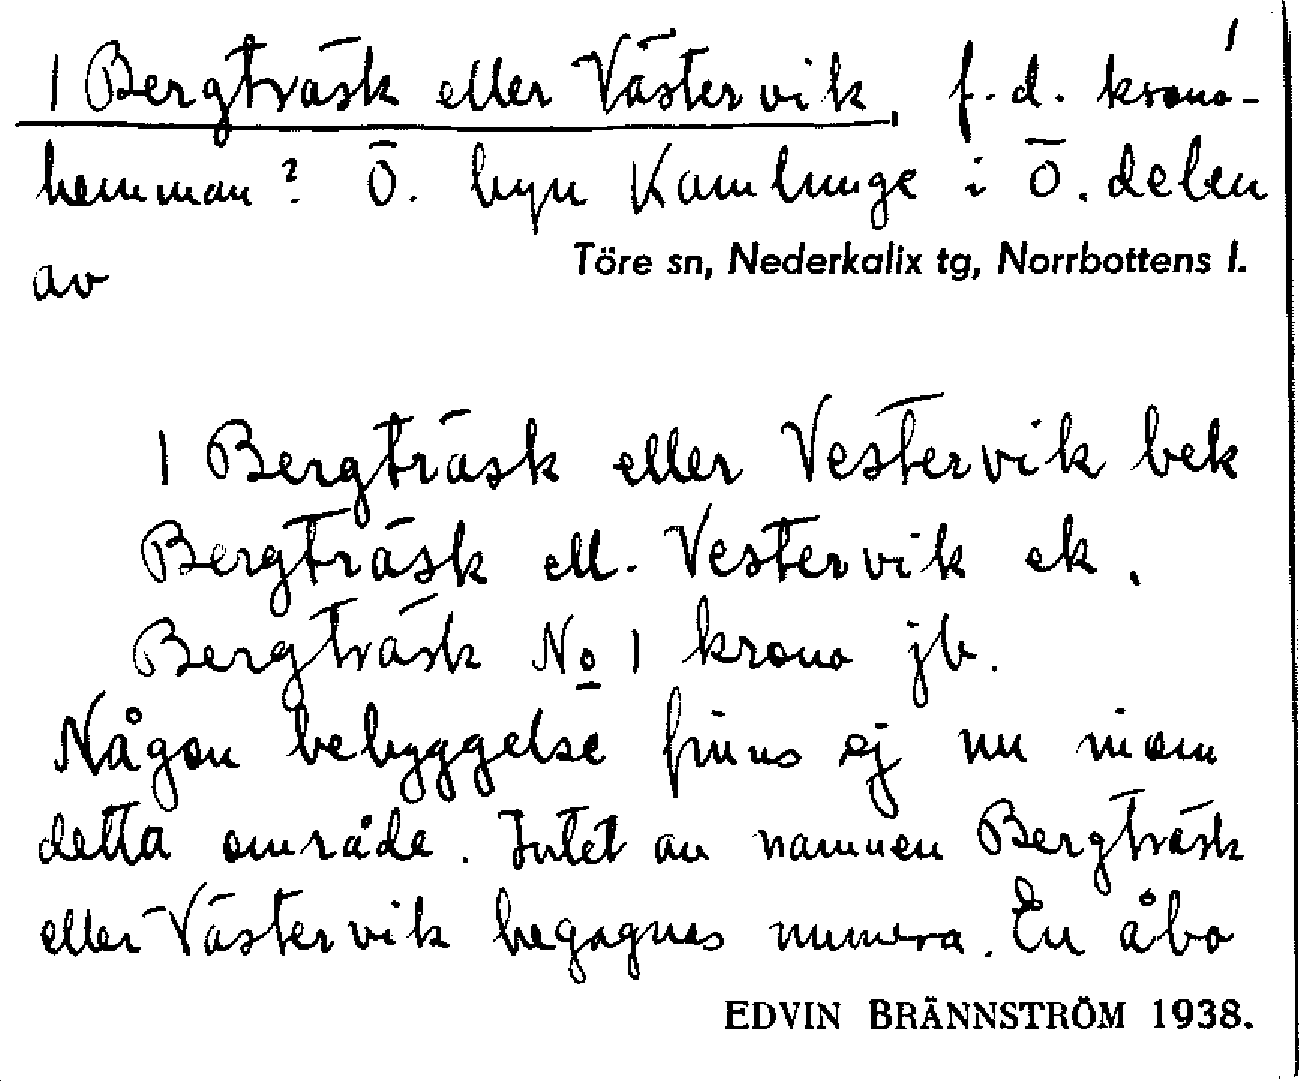 1
1 Bergträsk eller Västervik, f.d. krono-
hemman? Ö. byn Kamlunge i Ö. delen
av Töre sn, Nederkalix tg, Norrbottens l.
1 Bergträsk eller Vestervik bek
Bergträsk ell. Vestervik ek.
Bergträsk No 1 krono jb.
Någon bebyggelse finns ej nu inom
detta område. Intet av namnen Bergträsk
eller Västervik begagnas numera. En åbo
EDVIN BRÄNNSTRÖM 1938.